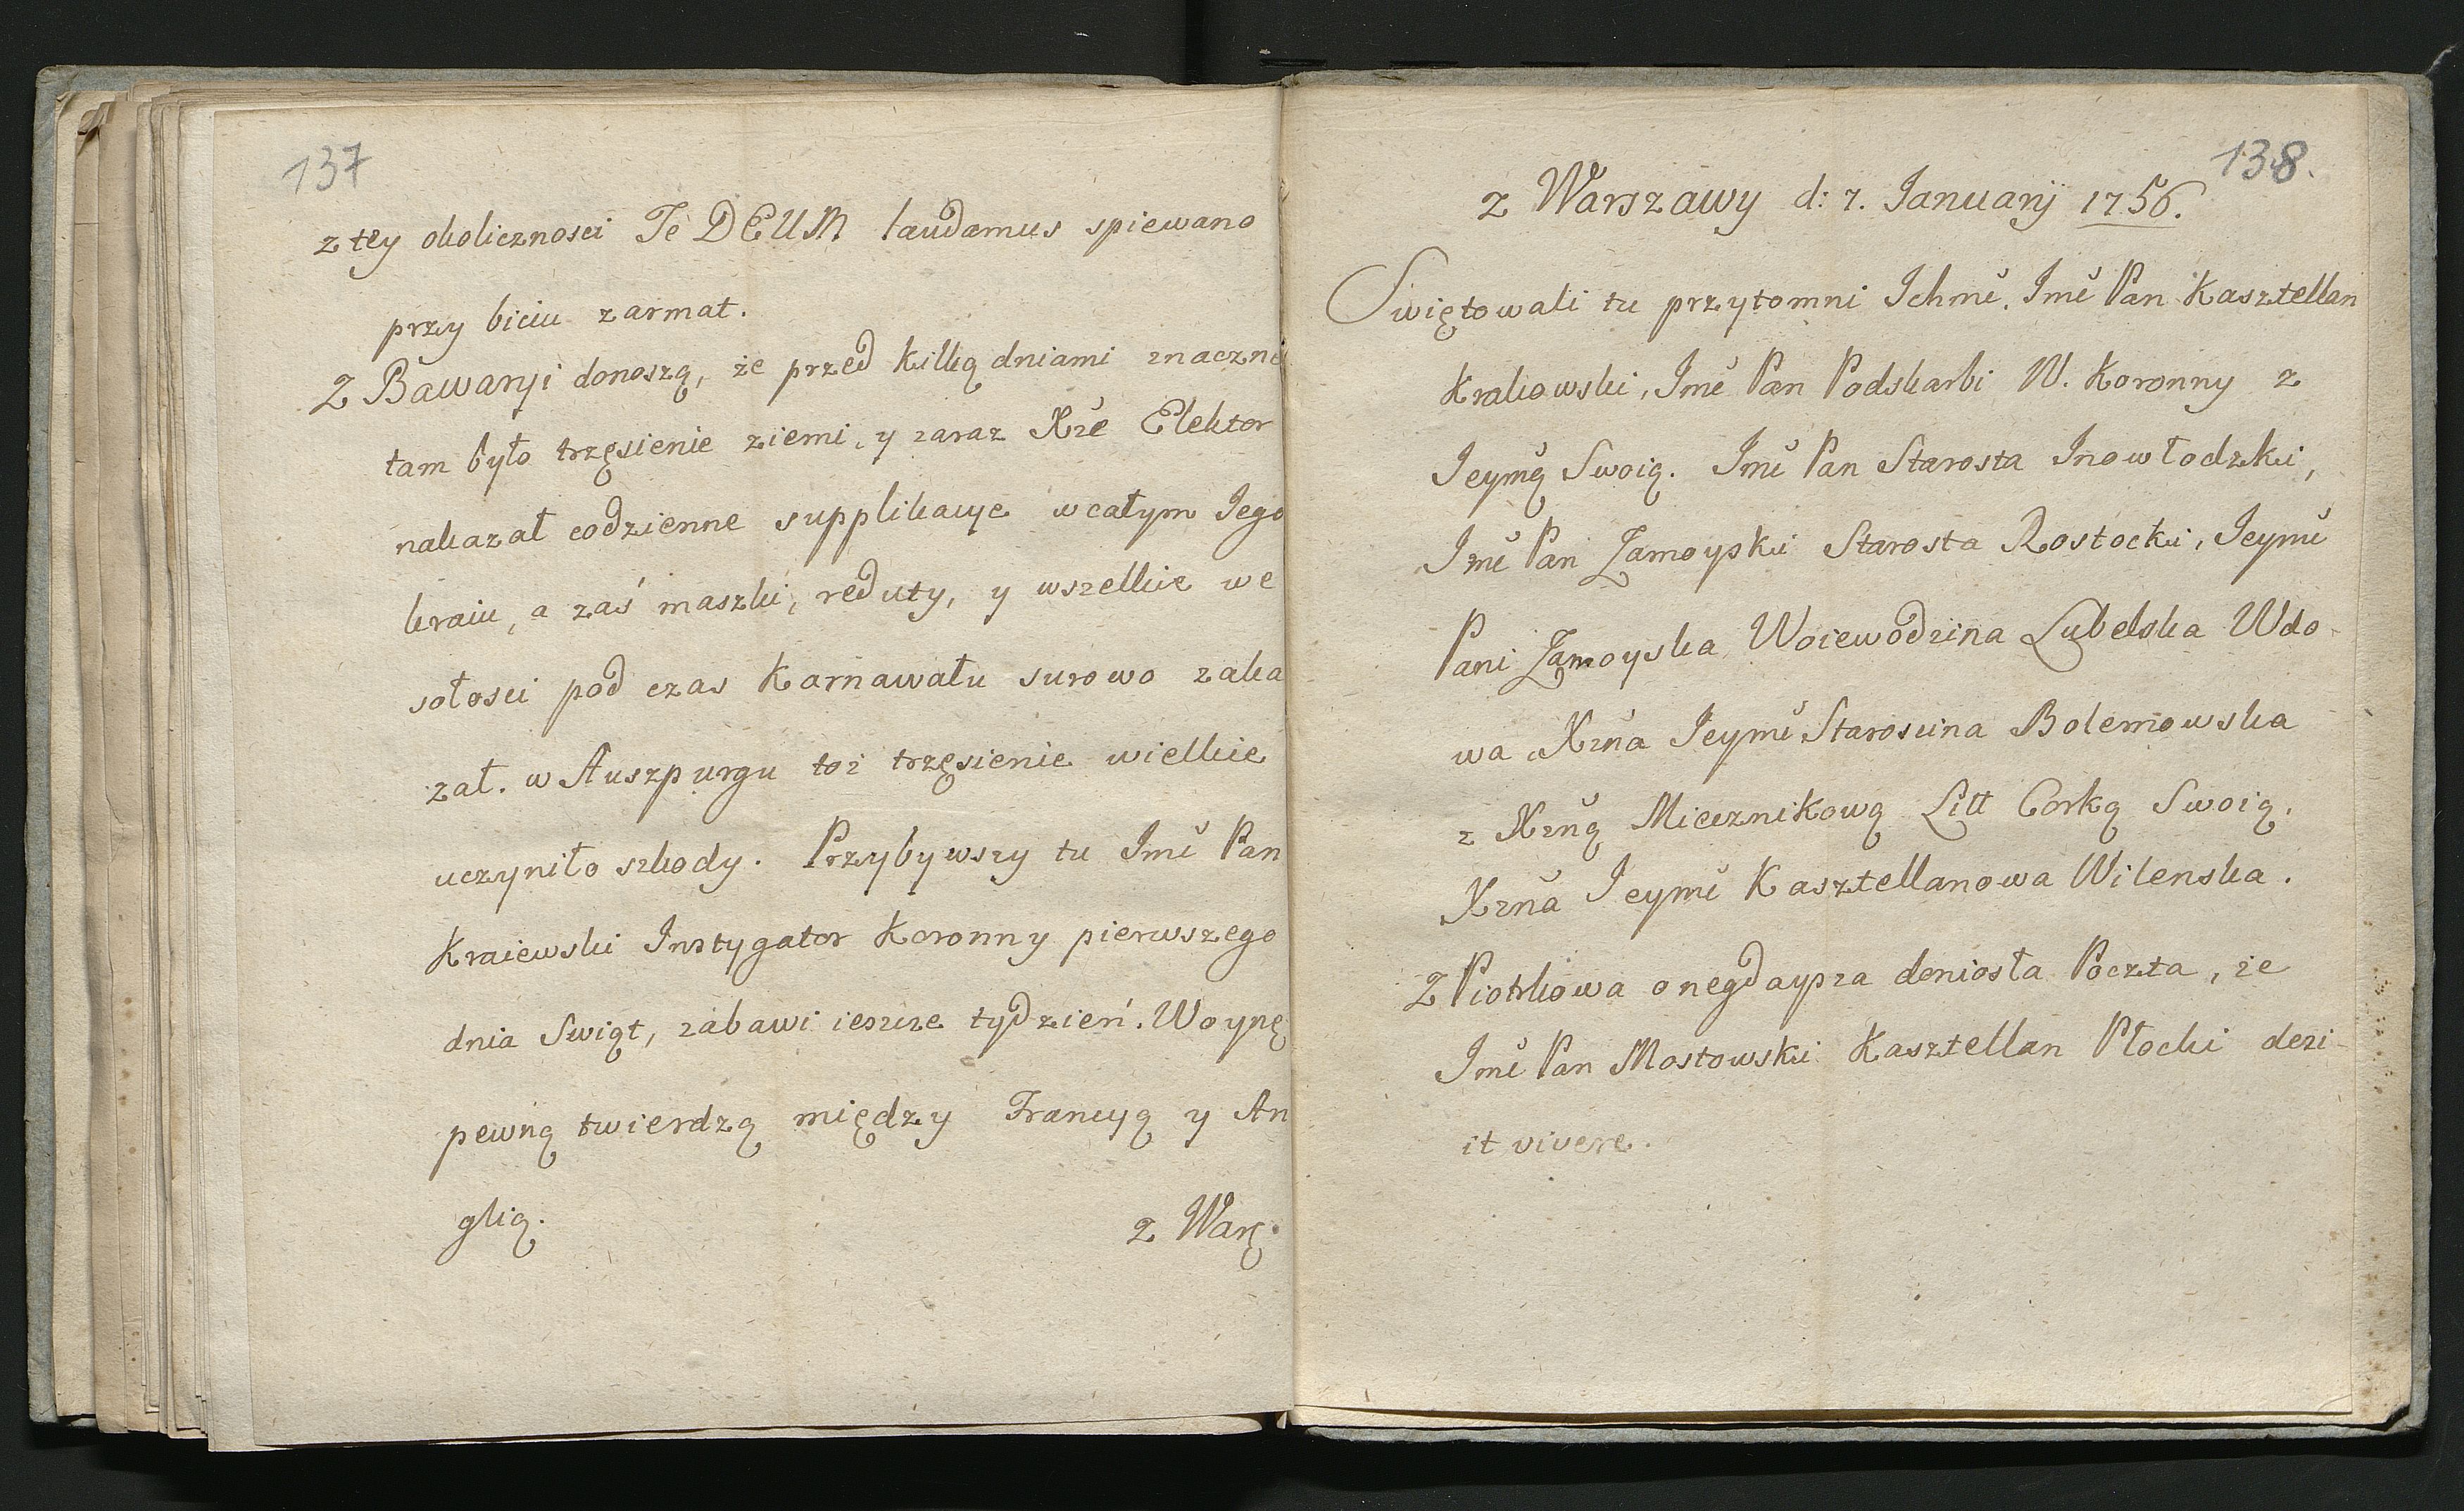 137
z tey okolicznosci Te DEUM laudamus spiewano
przy biciu z armat.
Z Bawaryi donoszą, że przed kilką dniami znaczne
tam było trzęsienie ziemi, y zaraz Xże Elektor
nakazał codzienne supplikacye w całym Jego
kraiu, a zaś maszki, reduty, y wszelkie we
sołosci pod czas Karnawału surowo zaka
zał. w Auszpurgu toż trzęsienie wielkie
uczyniło szkody. Przybywszy tu Jmć Pan
Kraiewski Instygator Koronny pierwszego
dnia Swiąt, zabawi ieszcze tydzień. Woynę
pewną twierdzą między Francyą y An
glią.
z Wars.
138.
z Warszawy d: 7. Januarij 1756.
Swiętowali tu przytomni Ichmć. Jmć Pan Kasztellan
Krakowski, Jmć Pan Podskarbi W. Koronny z
Jeymą Swoią. Jmć Pan Starosta Inowłodzki,
Jmć Pan Zamoyski Starosta Rostocki, Jeymć
Pani Zamoyska Woiewodzina Lubelska Wdo-
wa Xżna Jeymć Staroscina Bolemowska
z Xżną Miecznikową Litt Corką Swoią.
Xżna Jeymć Kasztellanowa Wilenska.
Z Piotrkowa onegdaysza doniosła Poczta, że
Jmć Pan Mostowski Kasztellan Płocki desi-
it vivere.